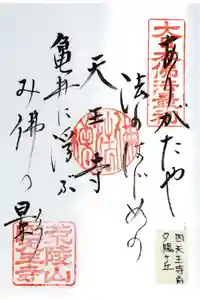 大日本佛法最初
ありがたや
法のはじめの
天王寺
亀井に浮ぶ
み佛の
影
荒陵山
四天王寺前
夕陽ヶ丘